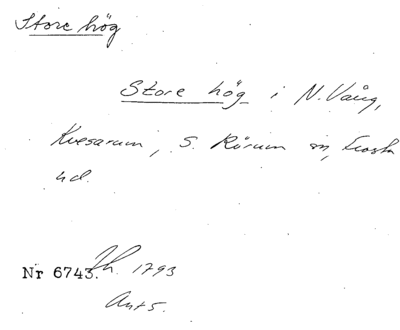 Store hög
Store hög i N. Vång,
Kvesarum, S. Rörum sn, Frosta
hd.
Nr 6743. Th. 1793
Ant 5.